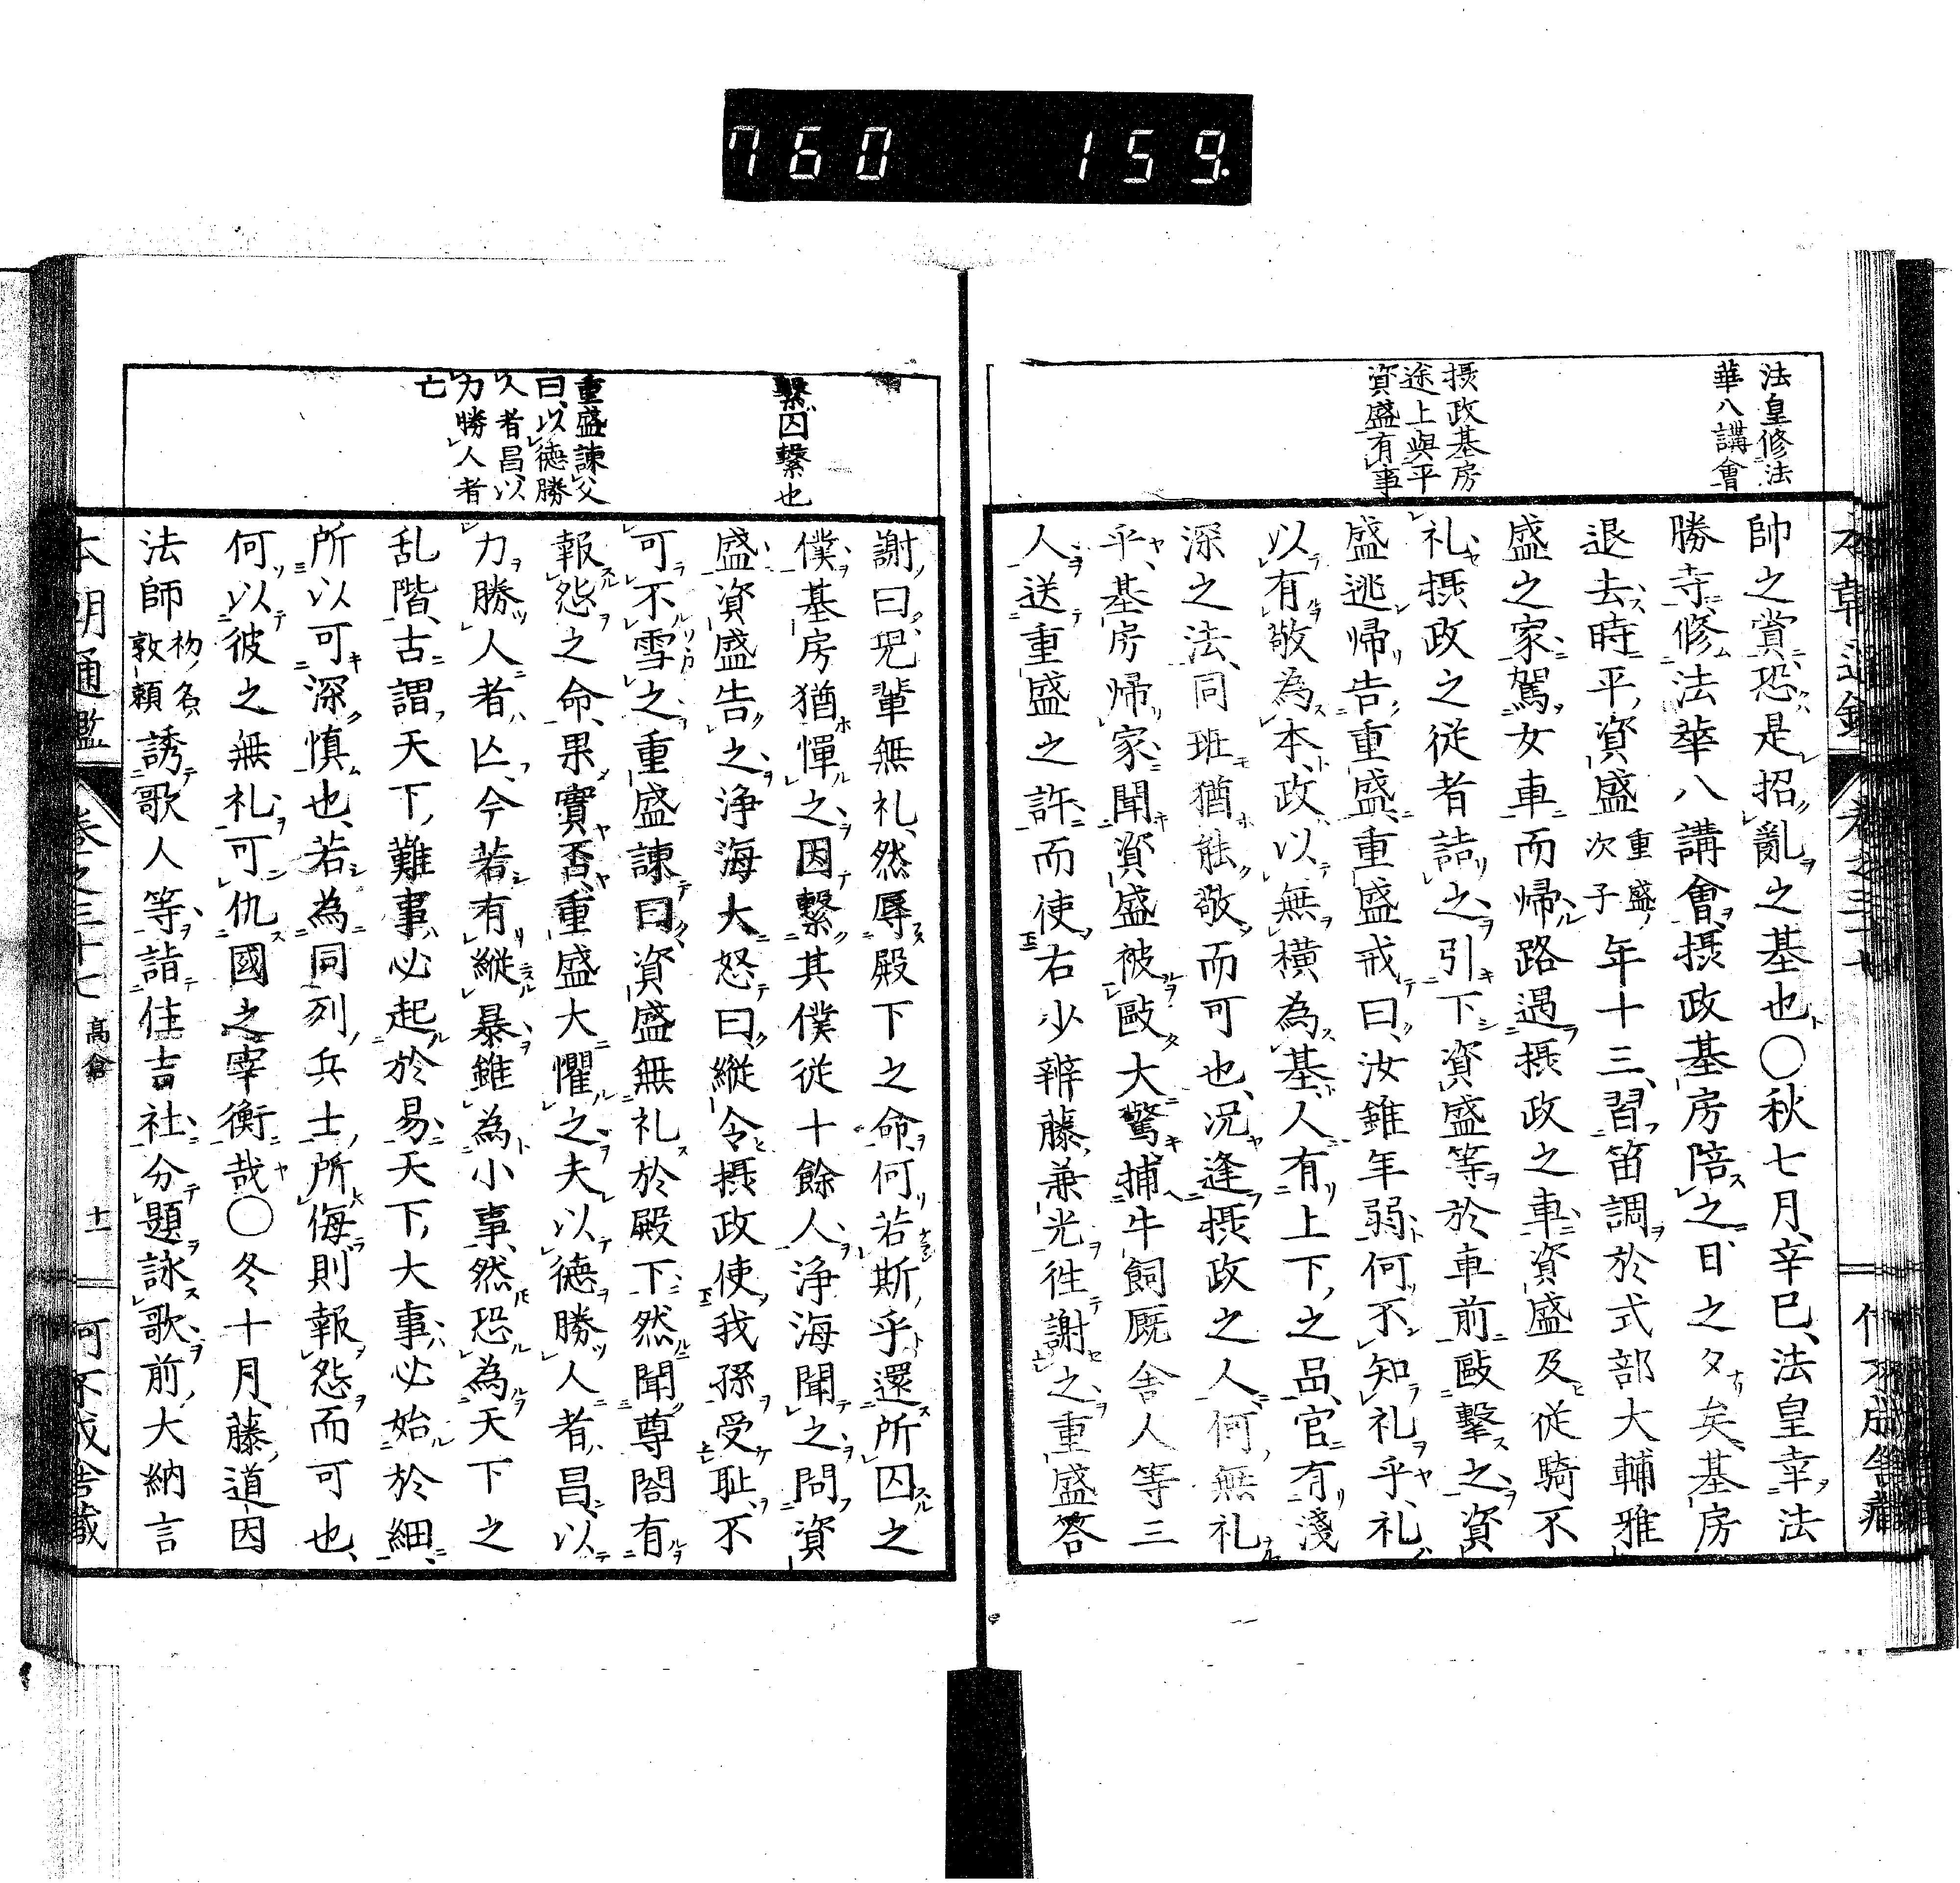 760 159
法皇修法
華八講會
摂政基房
途上與平
資盛有事
帥之賞恐是招亂之基也○秋七月辛巳法皇幸法
勝寺修法華八講會摂政基房陪之日之夕矣基房
退去時平資盛重盛次子年十三習笛調於式部大輔雅
盛之家駕女車而帰路遇摂政之車資盛及従騎不
礼摂政之従者詰之引下資盛等於車前毆撃之資
盛逃帰告重盛重盛戒曰汝雖年弱何不知礼乎礼
以有敬為本政以無横為基人有上下之品官有淺
深之法同班猶能敬而可也況逢摂政之人何無礼
乎基房帰家聞資盛被毆大驚捕牛飼厩舎人等三
人送重盛之許而使右少辨藤兼光徃謝之重盛答
繫囚繫也
重盛諫父
曰以德勝
人者昌以
力勝人者
亡
謝曰児輩無礼然辱殿下之命何若斯乎還所囚之
僕基房猶憚之因繫其僕従十餘人浄海聞之問資
盛資盛告之浄海大怒曰縦令摂政使我孫受耻不
可不雪之重盛諫曰資盛無礼於殿下然聞尊閤有
報怨之命果實否重盛大懼之夫以德勝人者昌以
力勝人者亡今若有縱暴雖為小事然恐為天下之
乱階古謂天下難事必起於易天下大事必始於細
所以可深慎也若為同列兵士所侮則報怨而可也
何以彼之無礼可仇國之宰衡哉○冬十月藤道因
法師初名敦頼誘歌人等詣住吉社分題詠歌前大納言
本朝通鑑 卷之三十七 高倉 十一